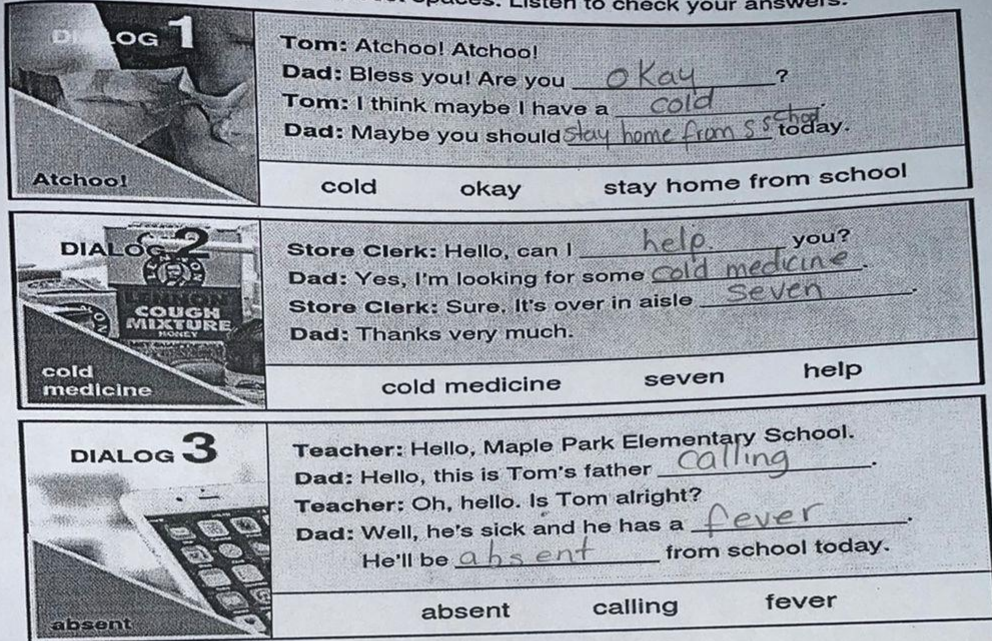 spaces. Listen to check your answers.
DIALOG 1
Atchoo!
Tom: Atchoo! Atchoo!
Dad: Bless you! Are you okay ?
Tom: I think maybe I have a cold.
Dad: Maybe you should stay home from s school today.
cold okay stay home from school
DIALOG 2
LENNON
COUGH
MIXTURE
HONEY
cold
medicine
Store Clerk: Hello, can I help. you?
Dad: Yes, I'm looking for some cold medicine.
Store Clerk: Sure. It's over in aisle seven.
Dad: Thanks very much.
cold medicine seven help
DIALOG 3
absent
Teacher: Hello, Maple Park Elementary School.
Dad: Hello, this is Tom's father calling.
Teacher: Oh, hello. Is Tom alright?
Dad: Well, he's sick and he has a fever.
He'll be absent from school today.
absent calling fever